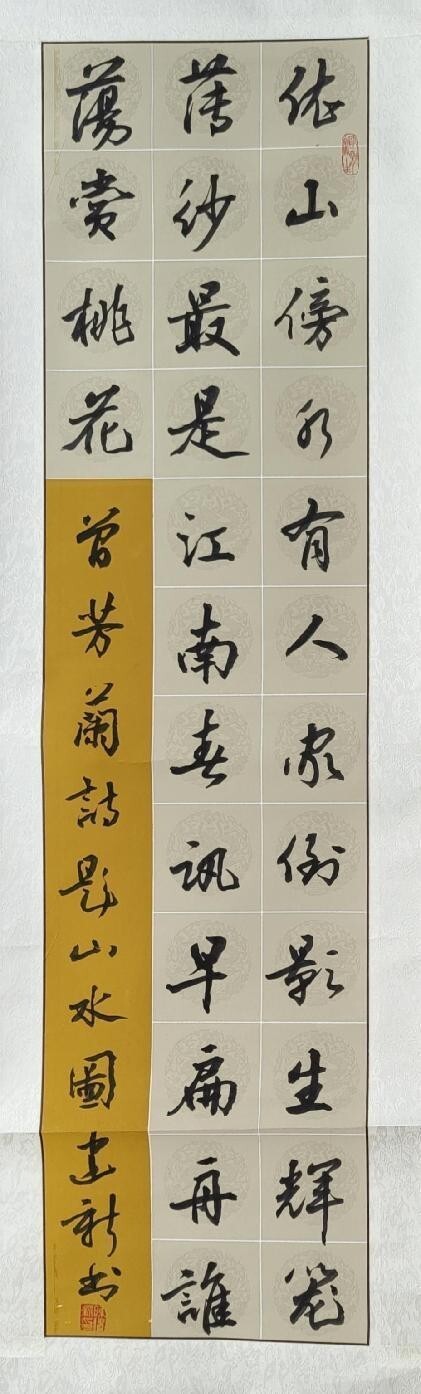 依山傍水有人家倒影生輝籠
薄紗最是江南春訊早扁舟誰
蕩賞桃花
曾芳蘭詩題山水圖建新书